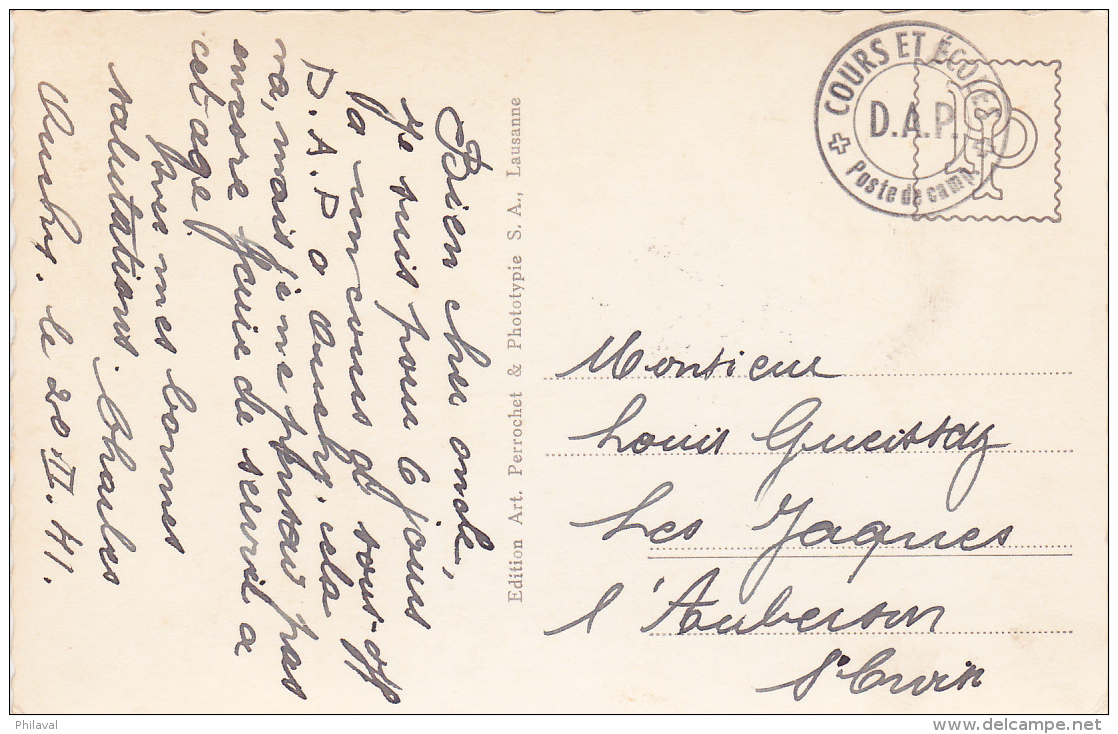 Bien cher oncle,
je suis pour 6 jours
fa un cours d sous-off
D.A.P à Auchy. cela
va, mais je ne pensais pas
encore faire de service à
cet âge.
Avec mes bonnes
salutations. Charles
le 20 VI. 41.
Edition Art. Perrochet & Phototypie S. A., Lausanne
COURS ET ÉCOLES
D.A.P.
Poste de camp.
Monsieur
Louis Gueissaz
Les Jaques
l'Auberson
s/ Ste Croix
Philaval
delcampe.net